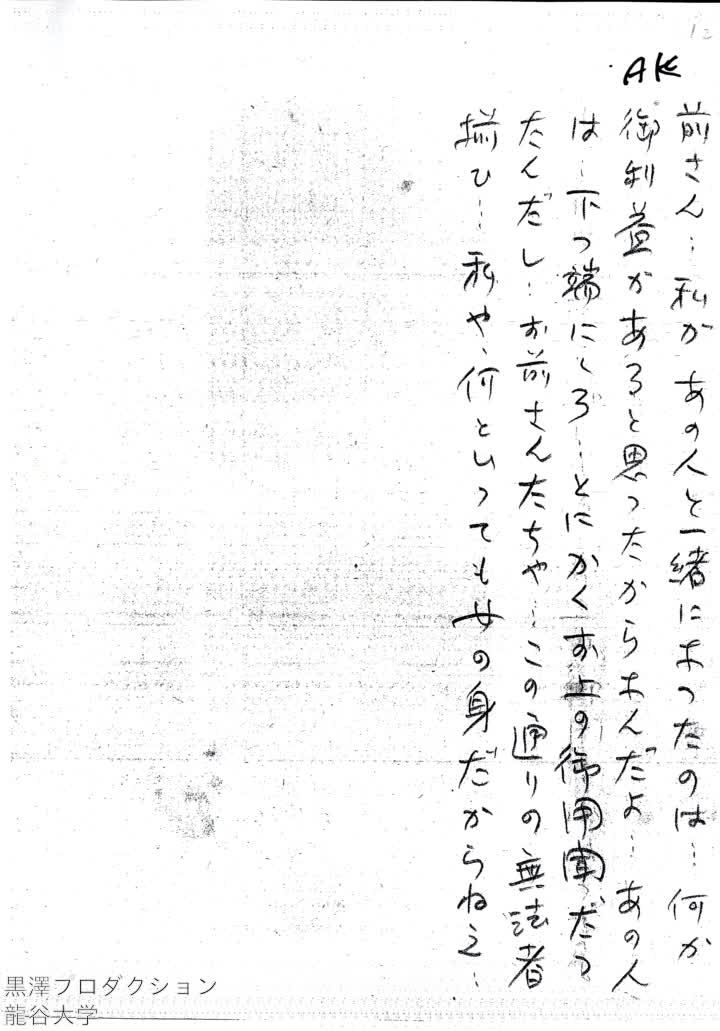 12
AK
前さん…私があの人と一緒になつたのは…何か
御利益があると思つたからなんだよ…あの人
は…下つ端にしろ…とにかくお上の御用聞だつ
たんだし…お前さんたちや…この通りの無法者
揃ひ…私や、何といつても女の身だからねえ…
黒澤プロダクション
龍谷大学